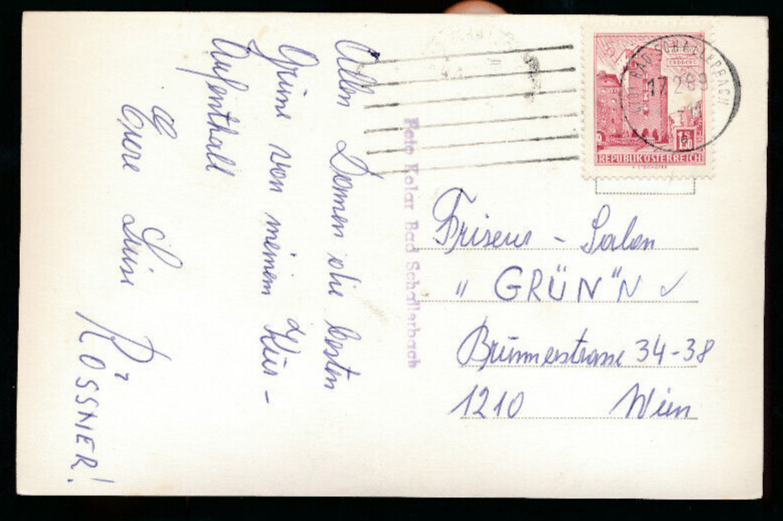 Allen Damen die besten
Grüße von meinem Kur-
Aufenthalt
Eure Luise
RÖSSNER!
Foto Kolar Bad Schallerbach
BAD SCHALLERBACH
17. 2 69
REPUBLIK ÖSTERREICH
Friseur - Salon
„GRÜN"N
Brünnerstrasse 34-38
1210 Wien